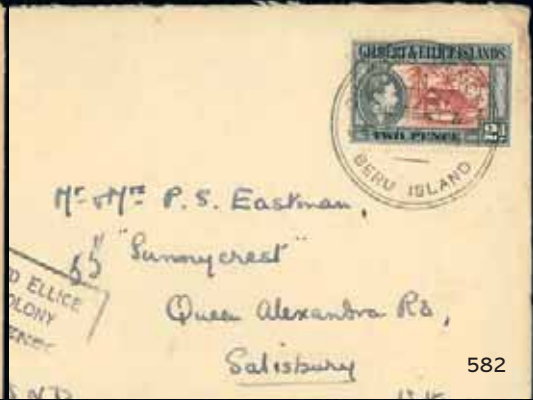 GILBERT & ELLICE ISLANDS
TWO PENCE 2d
BERU ISLAND
Mr & Mrs P. S. Eastman,
"Sunnycrest"
55
Queen Alexandra Rd,
Salisbury
D ELLICE
OLONY
582